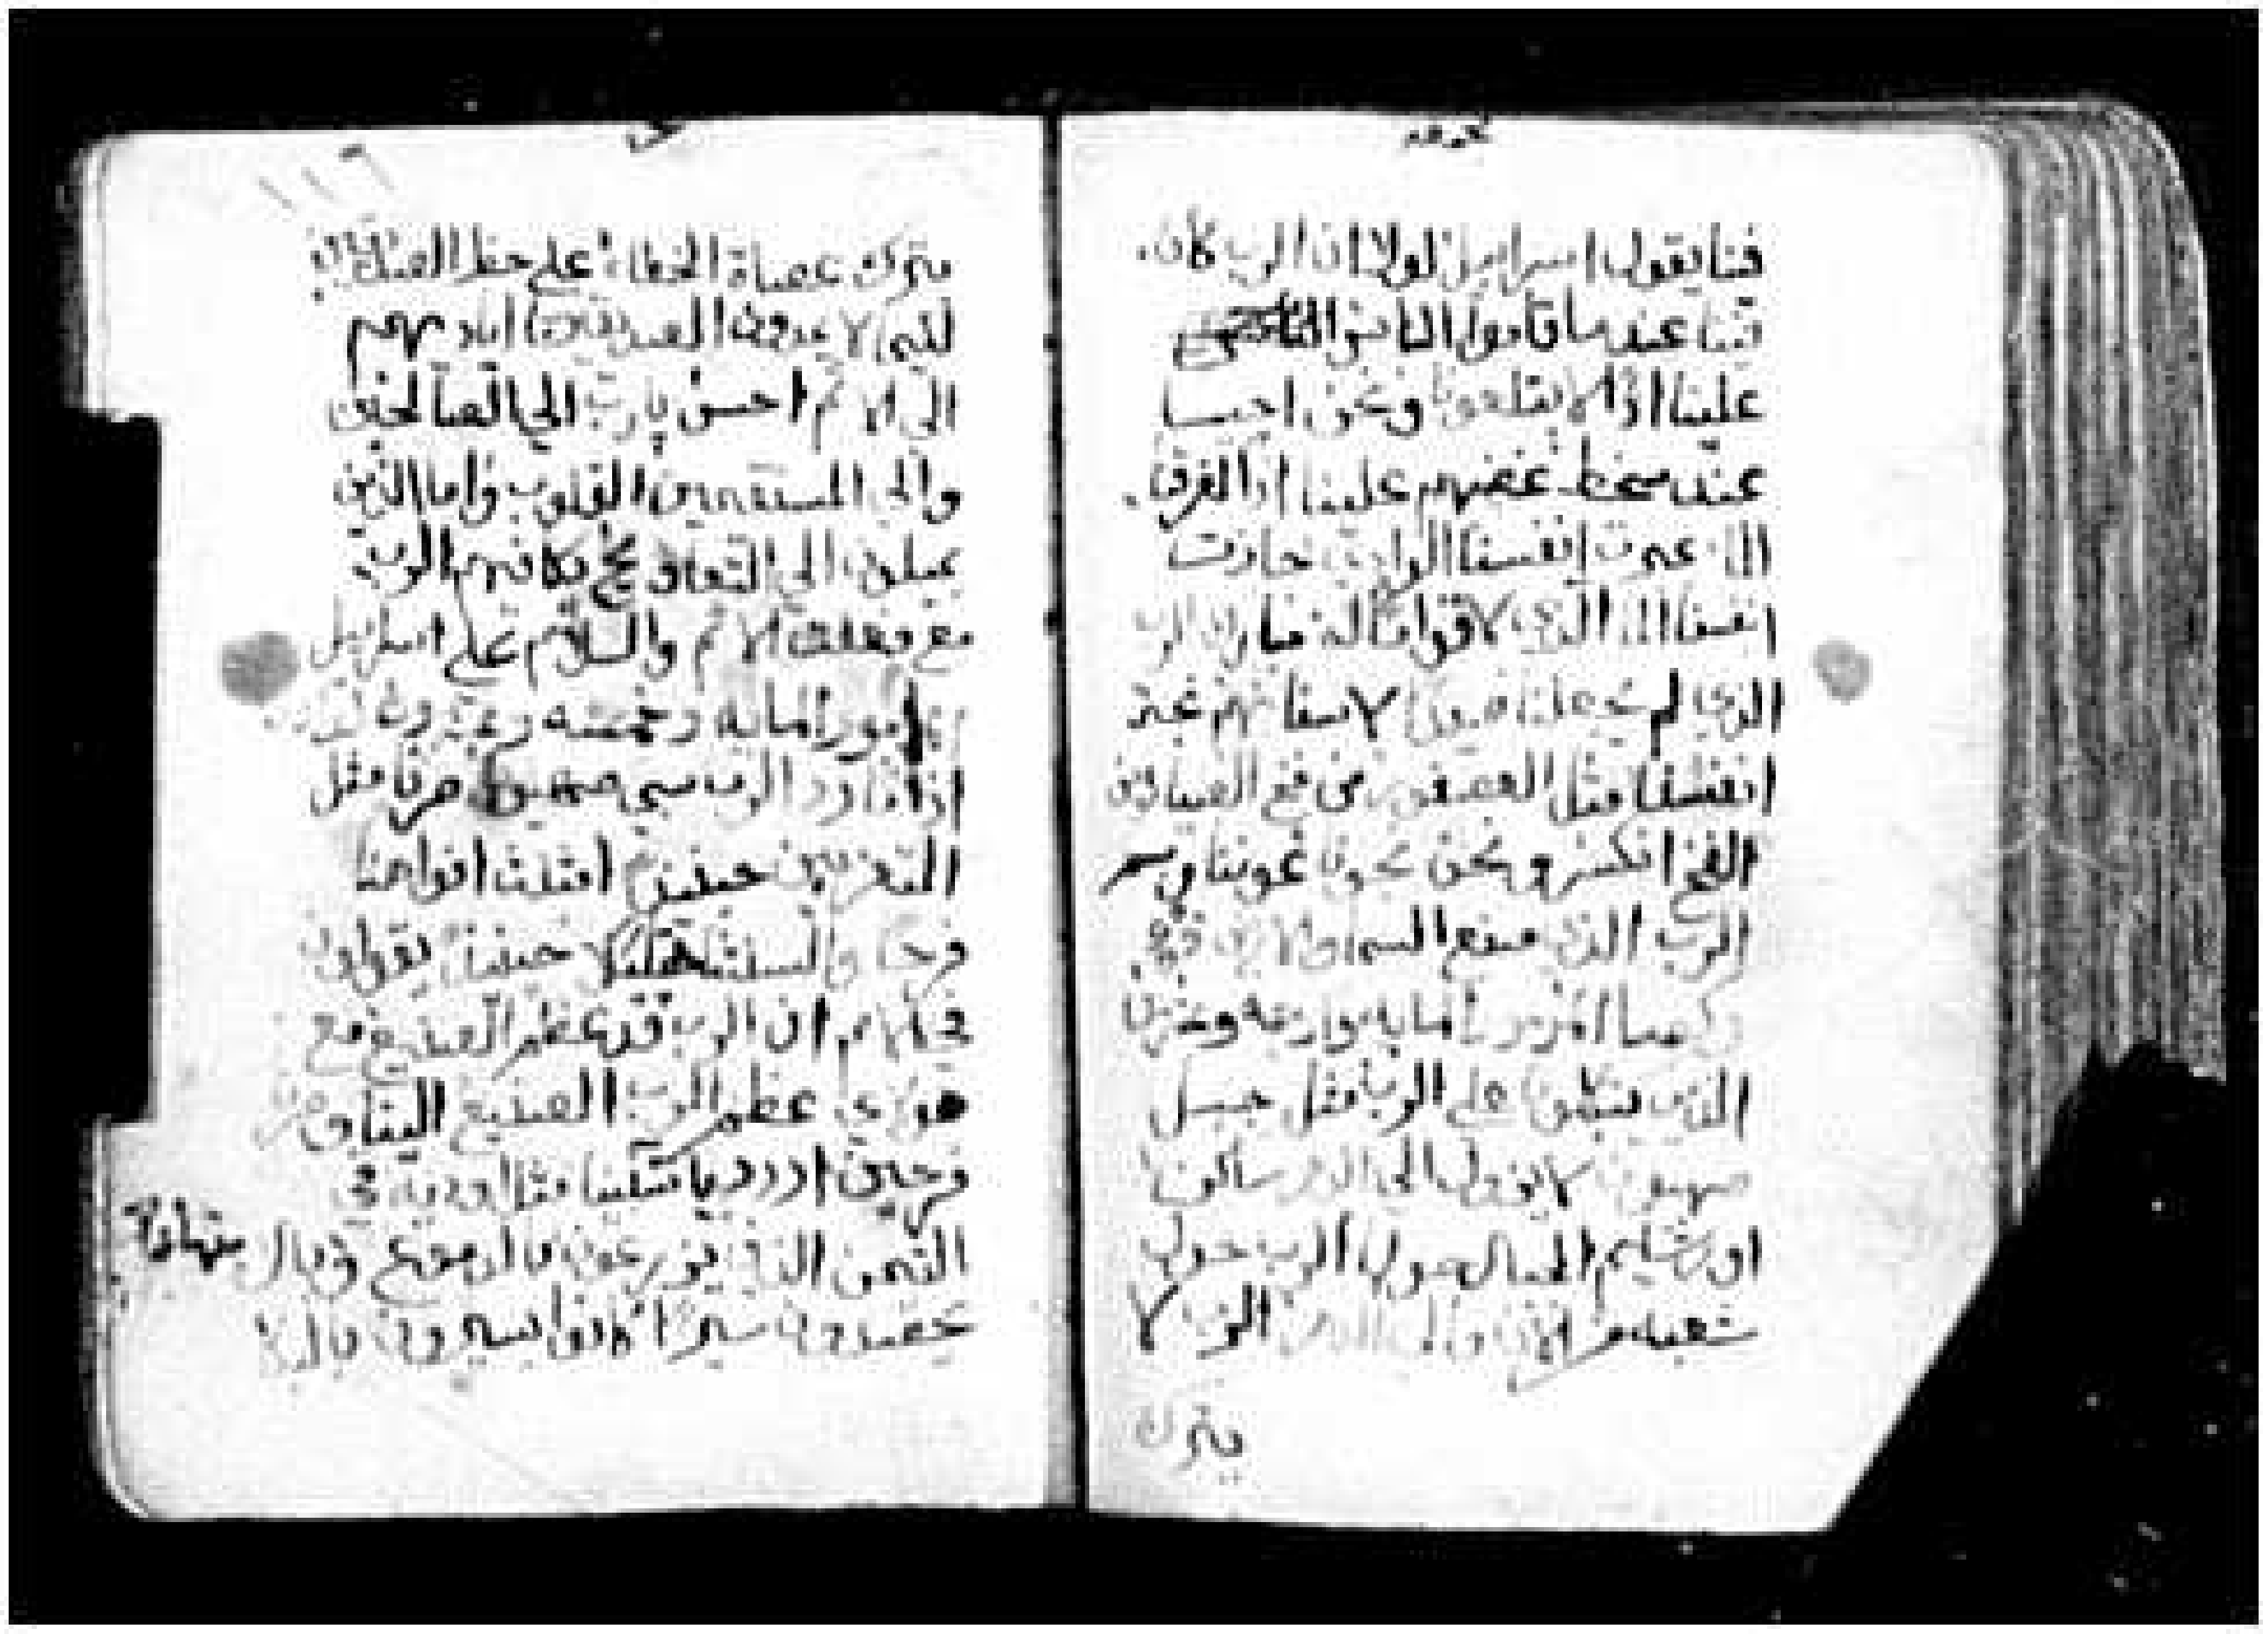 فينا يقول اسراييل لولا ان الرب كان
فينا عندما قاموا الناس
علينا اذًا لابتلعونا ونحن احيا
عند سخط غضبهم علينا اذا لغرقنا
الما عبرت انفسنا الوادي جازت
انفسنا الما الذي لا قوام له مبارك الرب
الذي لم يجعلنا صيدًا لاسنانهم نجت
انفسنا مثل العصفور من فخ الصيادين
الفخ انكسر ونحن نجونا عوننا باسم
الرب الذي صنع السما والارض
المزمور
الذين يتكلون على الرب مثل جبل
صهيون لا يزول الى الدهر ساكن
اورشليم الجبال حولها الرب حول
شعبه من الان والى الدهر الرب لا
يترك
١١٦
يترك عصاة الخطاه على حظ الصديقين
لكي لا يمدون الصديقون اياديهم
الى الاثم احسن يا رب الى الصالحين
والى المستقيمين القلوب واما الذين
يميلون الى
مع فعلة الاثم والسلام على اسراييل
المزمور المايه وخمسه وعشرون
اذا ما رد الرب سبي صهيون صرنا مثل
المتعزيين حينيذ امتلت افواهنا
فرحًا والسنتنا تهليلا حينيذ يقولون
في الامم ان الرب قد عظم الصنيع مع
هولاي عظم الرب الصنيع الينا وصرنا
فرحين اردد يا رب سبينا مثل اوديه في
التيمن الذين يزرعون بالدموع وبالابتهاج
يحصدون سيرًا كانوا يسيرون باكيا